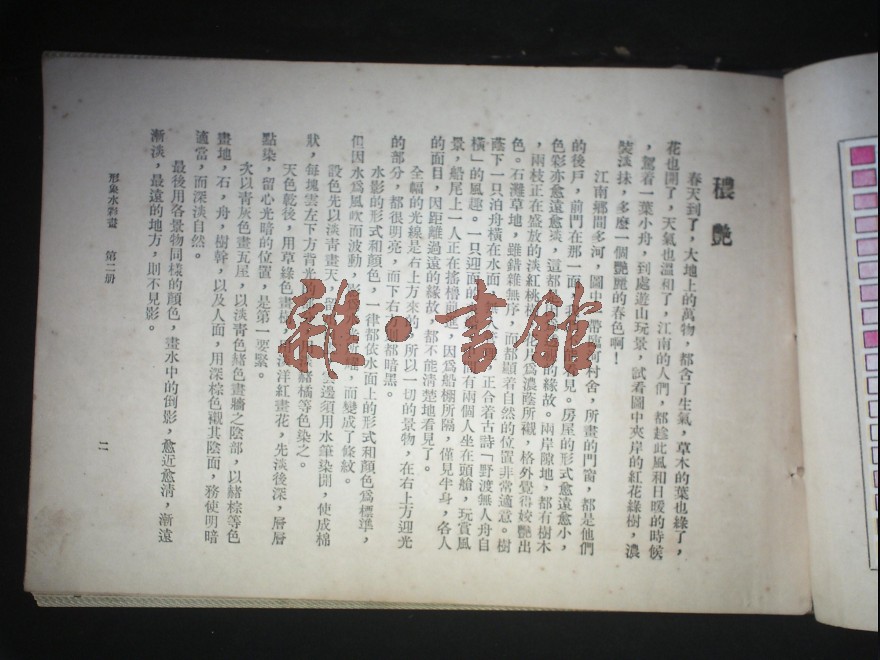 穠艷
春天到了，大地上的萬物，都含了生氣，草木的葉也綠了，
花也開了，天氣也溫和了，江南的人們，都趁此風和日暖的時候
，駕着一葉小舟，到處遊山玩景，試看圖中夾岸的紅花綠樹，濃
裝淡抹，多麽一個艷麗的春色啊！
江南鄉間多河，圖中村舍，所畫的門窗，都是他們
的後戶，前門在那一面，見。房屋的形式愈遠愈小，
色彩亦愈遠愈淡，這都的緣故。兩岸隙地，都有樹木
，兩枝正在盛放的淡紅桃爲濃蔭所襯，格外覺得姣艷出
色。石灘草地，雖錯雜無序，而都顯着自然的位置非常適意。樹
蔭下一只泊舟橫在水面，正合着古詩「野渡無人舟自
橫」的風趣。一只迎面的有兩個人坐在頭艙，玩賞風
景，船尾上一人正在搖櫓前進，因爲船棚所隔，僅見半身，各人
的面目，因距離過遠的緣故，都不能清楚地看見了。
全幅的光線是右上方來的，所以一切的景物，在右上方迎光
的部分，都很明亮，而下右方則都暗黑。
水影的形式和顏色，一律都依水面上的形式和顏色爲標準，
但因水爲風吹而波動，而變成了條紋。
設色先以淡青畫天，留邊須用水筆染開，使成棉
狀，每塊雲左下方背光的赭橘等色染之。
天色乾後，用草綠色畫樹，洋紅畫花，先淡後深，層層
點染，留心光暗的位置，是第一要緊。
次以青灰色畫瓦屋，以淡青色赭色畫牆之陰部，以赭棕等色
畫地，石，舟，樹幹，以及人面，用深棕色襯其陰面，務使明暗
適當，而深淡自然。
最後用各景物同樣的顏色，畫水中的倒影，愈近愈清，漸遠
漸淡，最遠的地方，則不見影。
形象水彩畫 第二册
二
雜·書館